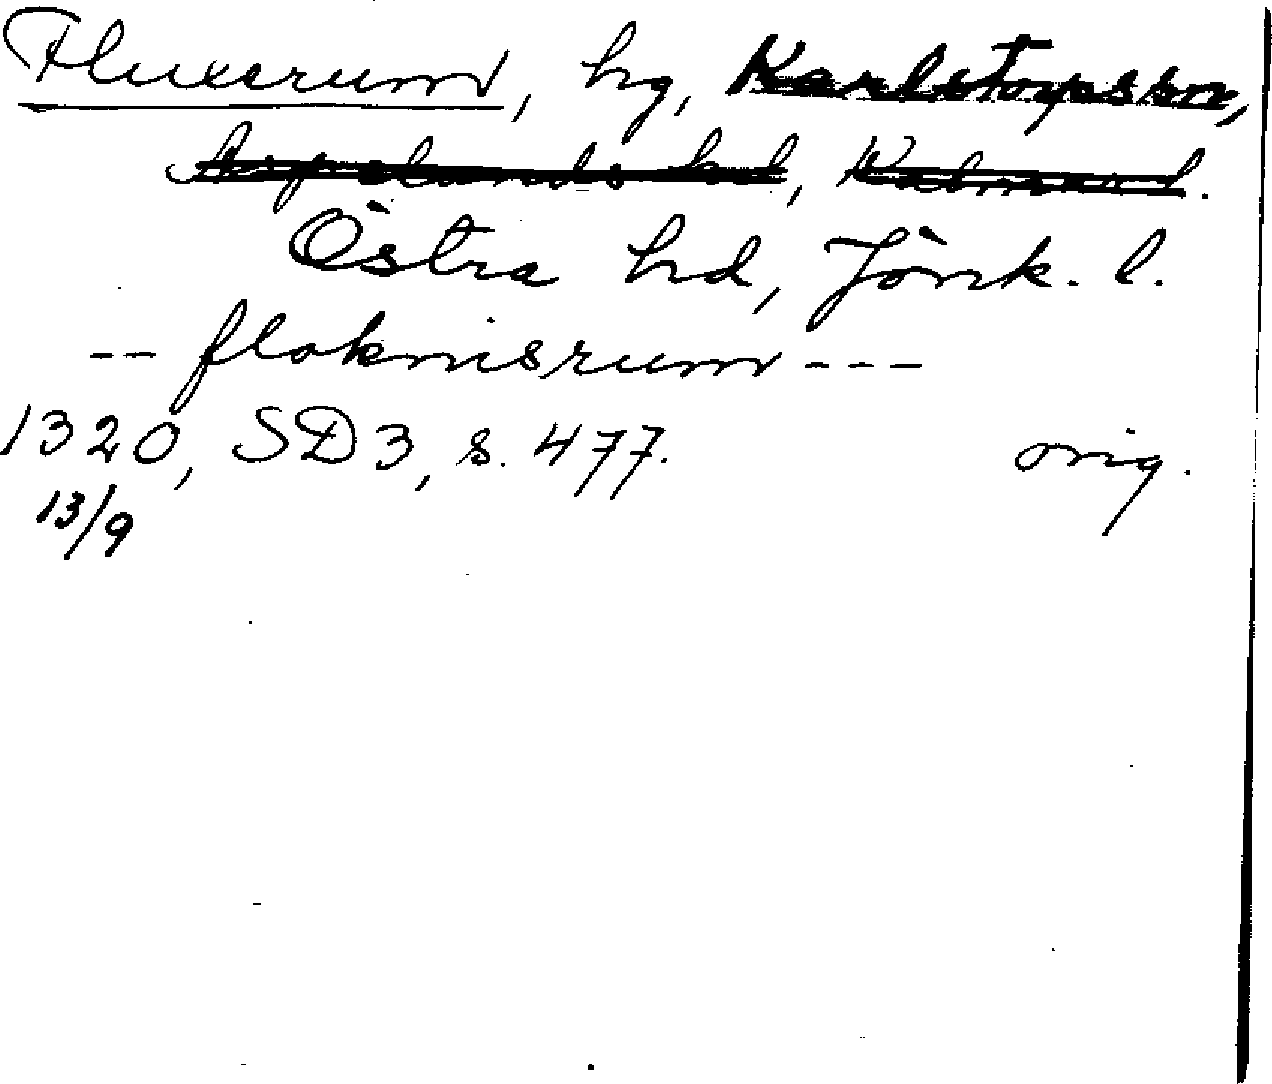 Fluxerum, hg, Karlstorps sn,
Aspelands hd, Kalmar l.
Östra hd, Jönk. l.
-- floknisrum ---
1320, SD3, s. 477. orig.
13/9